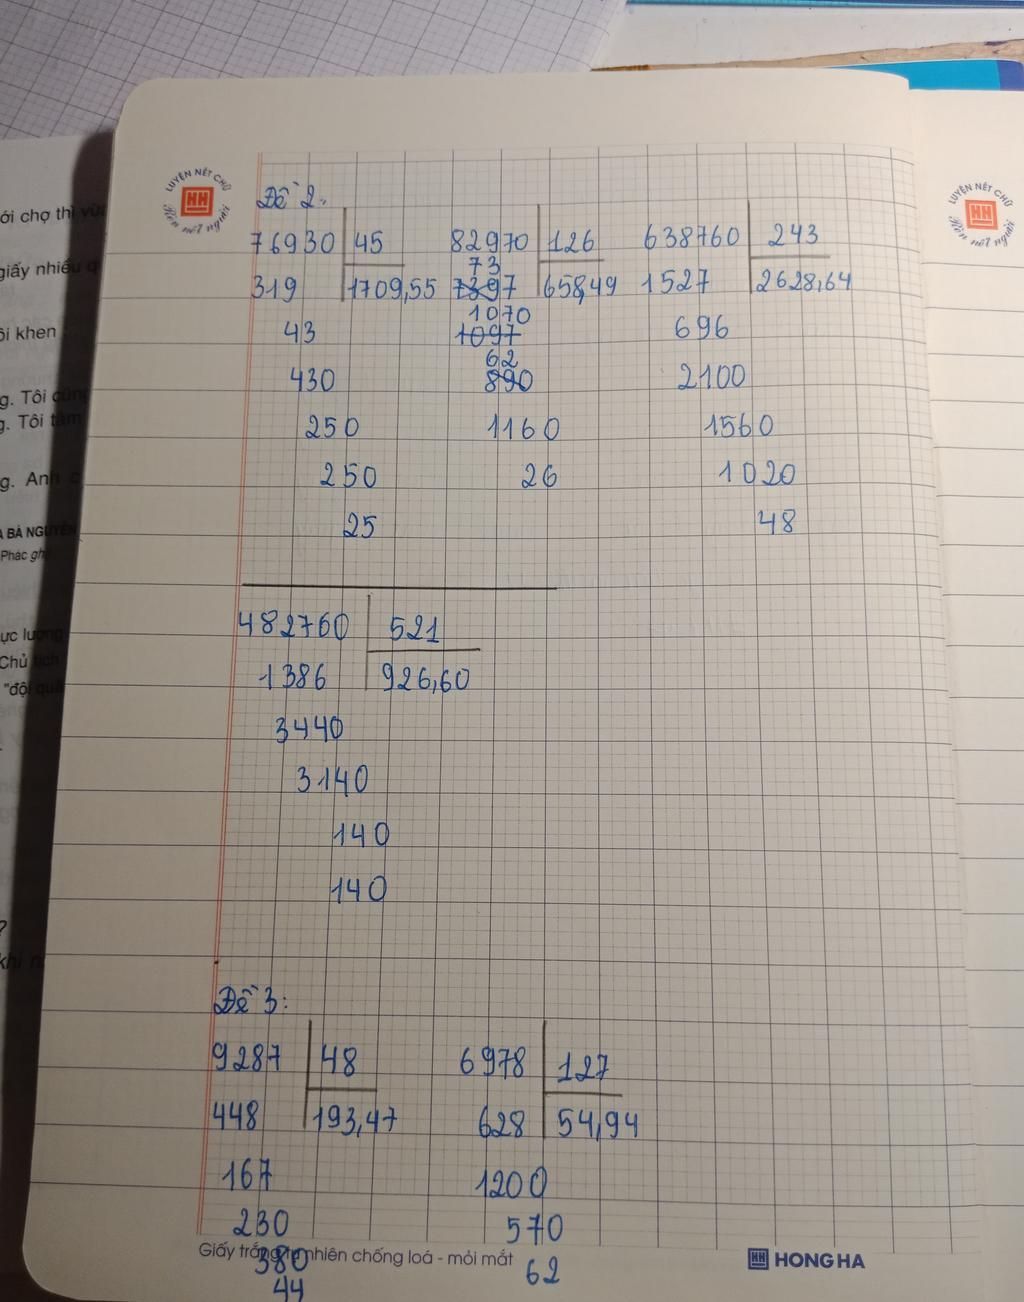 LUYỆN NÉT CHỮ
HH
Rèn nết người
LUYỆN NÉT CHỮ
HH
ới chợ thì
giấy nhiều
ôi khen
g. Tôi
g. Tôi
g. Anh
Phác
ực lượng
Chủ tịch
"đội
Đề 2:
76930 45 82970 126 638760 243
73
319 1709,55 7397 658,49 1527 2628,64
1070
43 1097 696
62
430 890 2100
250 1160 1560
250 26 1020
25 48
482760 521
1386 926,60
3440
3140
140
140
Đề 3:
9287 48 6978 127
448 193,47 628 54,94
167 1200
230 570
Giấy trắng tự nhiên chống loá - mỏi mắt HH HONG HA
380 62
44